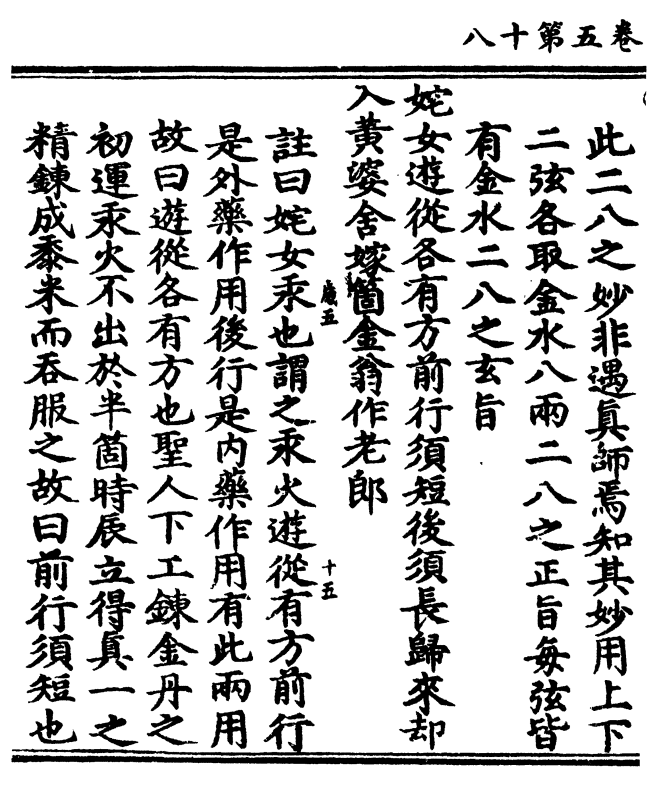 卷五第十八
此二八之妙非遇眞師焉知其妙用上下
二弦各取金水八兩二八之正旨每弦皆
有金水二八之玄旨
姹女遊從各有方前行須短後須長歸來却
入黃婆舍嫁箇金翁作老郎
註曰姹女汞也謂之汞火遊從有方前行
是外藥作用後行是内藥作用有此兩用
故曰遊從各有方也聖人下工鍊金丹之
初運汞火不出於半箇時辰立得眞一之
精鍊成黍米而吞服之故曰前行須短也
歲五
十五